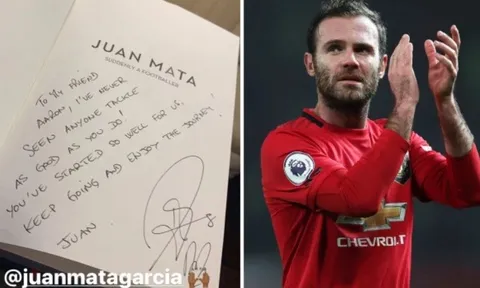 JUAN MATA
SUDDENLY A FOOTBALLER
TO MY FRIEND
AARON, I'VE NEVER
SEEN ANYONE TACKLE
AS GOOD AS YOU DO!
YOU'VE STARTED SO WELL FOR US.
KEEP GOING AND ENJOY THE JOURNEY
JUAN
@juanmatagarcia
Premier
League
CHEVROLET